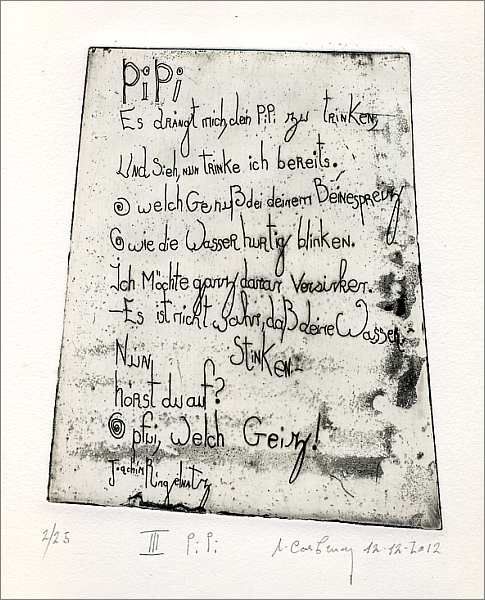 PiPi
Es drängt mich, dein PiPi zu trinken,
Und Sieh, nun trinke ich bereits.
O welch Genuß bei deinem Beinespreiz
O wie die Wasser hurtig blinken.
Ich Möchte ganz daran Versinken.
–Es ist nicht wahr, daß deine Wasser
Stinken–
Nun,
hörst du auf?
O pfui, welch Geiz!
Joachim Ringelnatz
2/25 III PiPi 12-12-2012